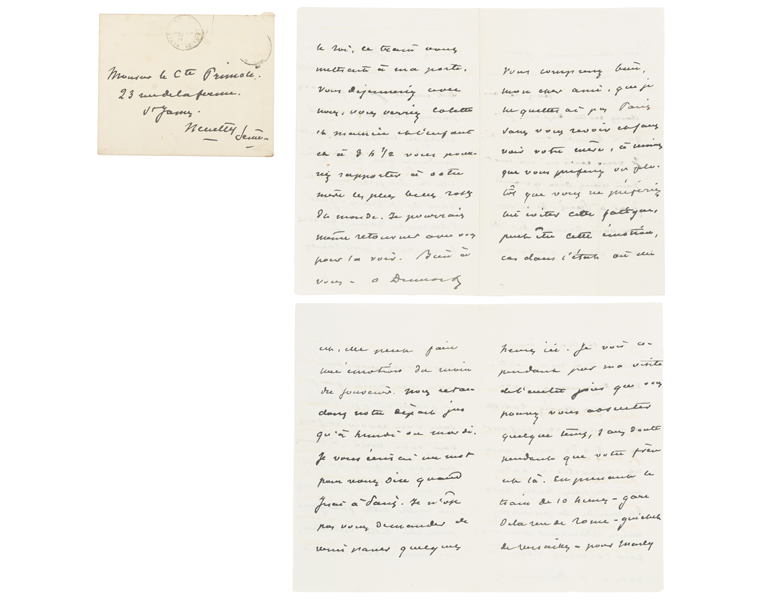 Monsieur le Cte Primoli.
23 rue de la ferme.
St James
Neuilly
Seine
Vous comprenez bien,
mon cher ami, que je
ne quitterai pas Paris
sans vous revoir et sans
voir votre mère, à moins
que vous préfériez ou plu-
tôt que vous ne préfériez
lui éviter cette fatigue,
peut être cette émotion,
car dans l'état où elle
est, elle peut faire
une émotion du moindre
du souvenir. Nous retar
dons notre départ jus
qu'à lundi ou mardi.
Je vous écrirai un mot
pour vous dire quand
j'irai à Paris. Je n'ose
pas vous demander de
venir passer quelques
heures ici. Je vois ce-
pendant par ma visite
de l'autre jour que vous
pouvez vous absenter
quelque temps, sans doute
pendant que votre frère
est là. En prenant le
train de 10 heures - gare
de la rue de Rome - guichet
de Versailles - pour Marly
le roi, ce train vous
mettrait à ma porte.
Vous déjeuneriez avec
nous, vous verriez Colette
et Maurice et l'enfant
et à 3 h 1/2 vous pour-
riez rapporter à votre
mère les plus belles roses
du monde. Je pourrais
même retourner avec vous
pour la voir. Bien à
vous - A Dumas f